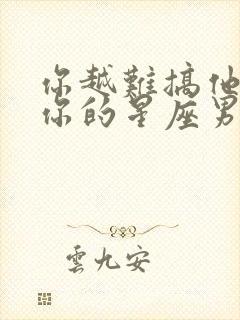 你越難搞他
你的星座男
雲九安